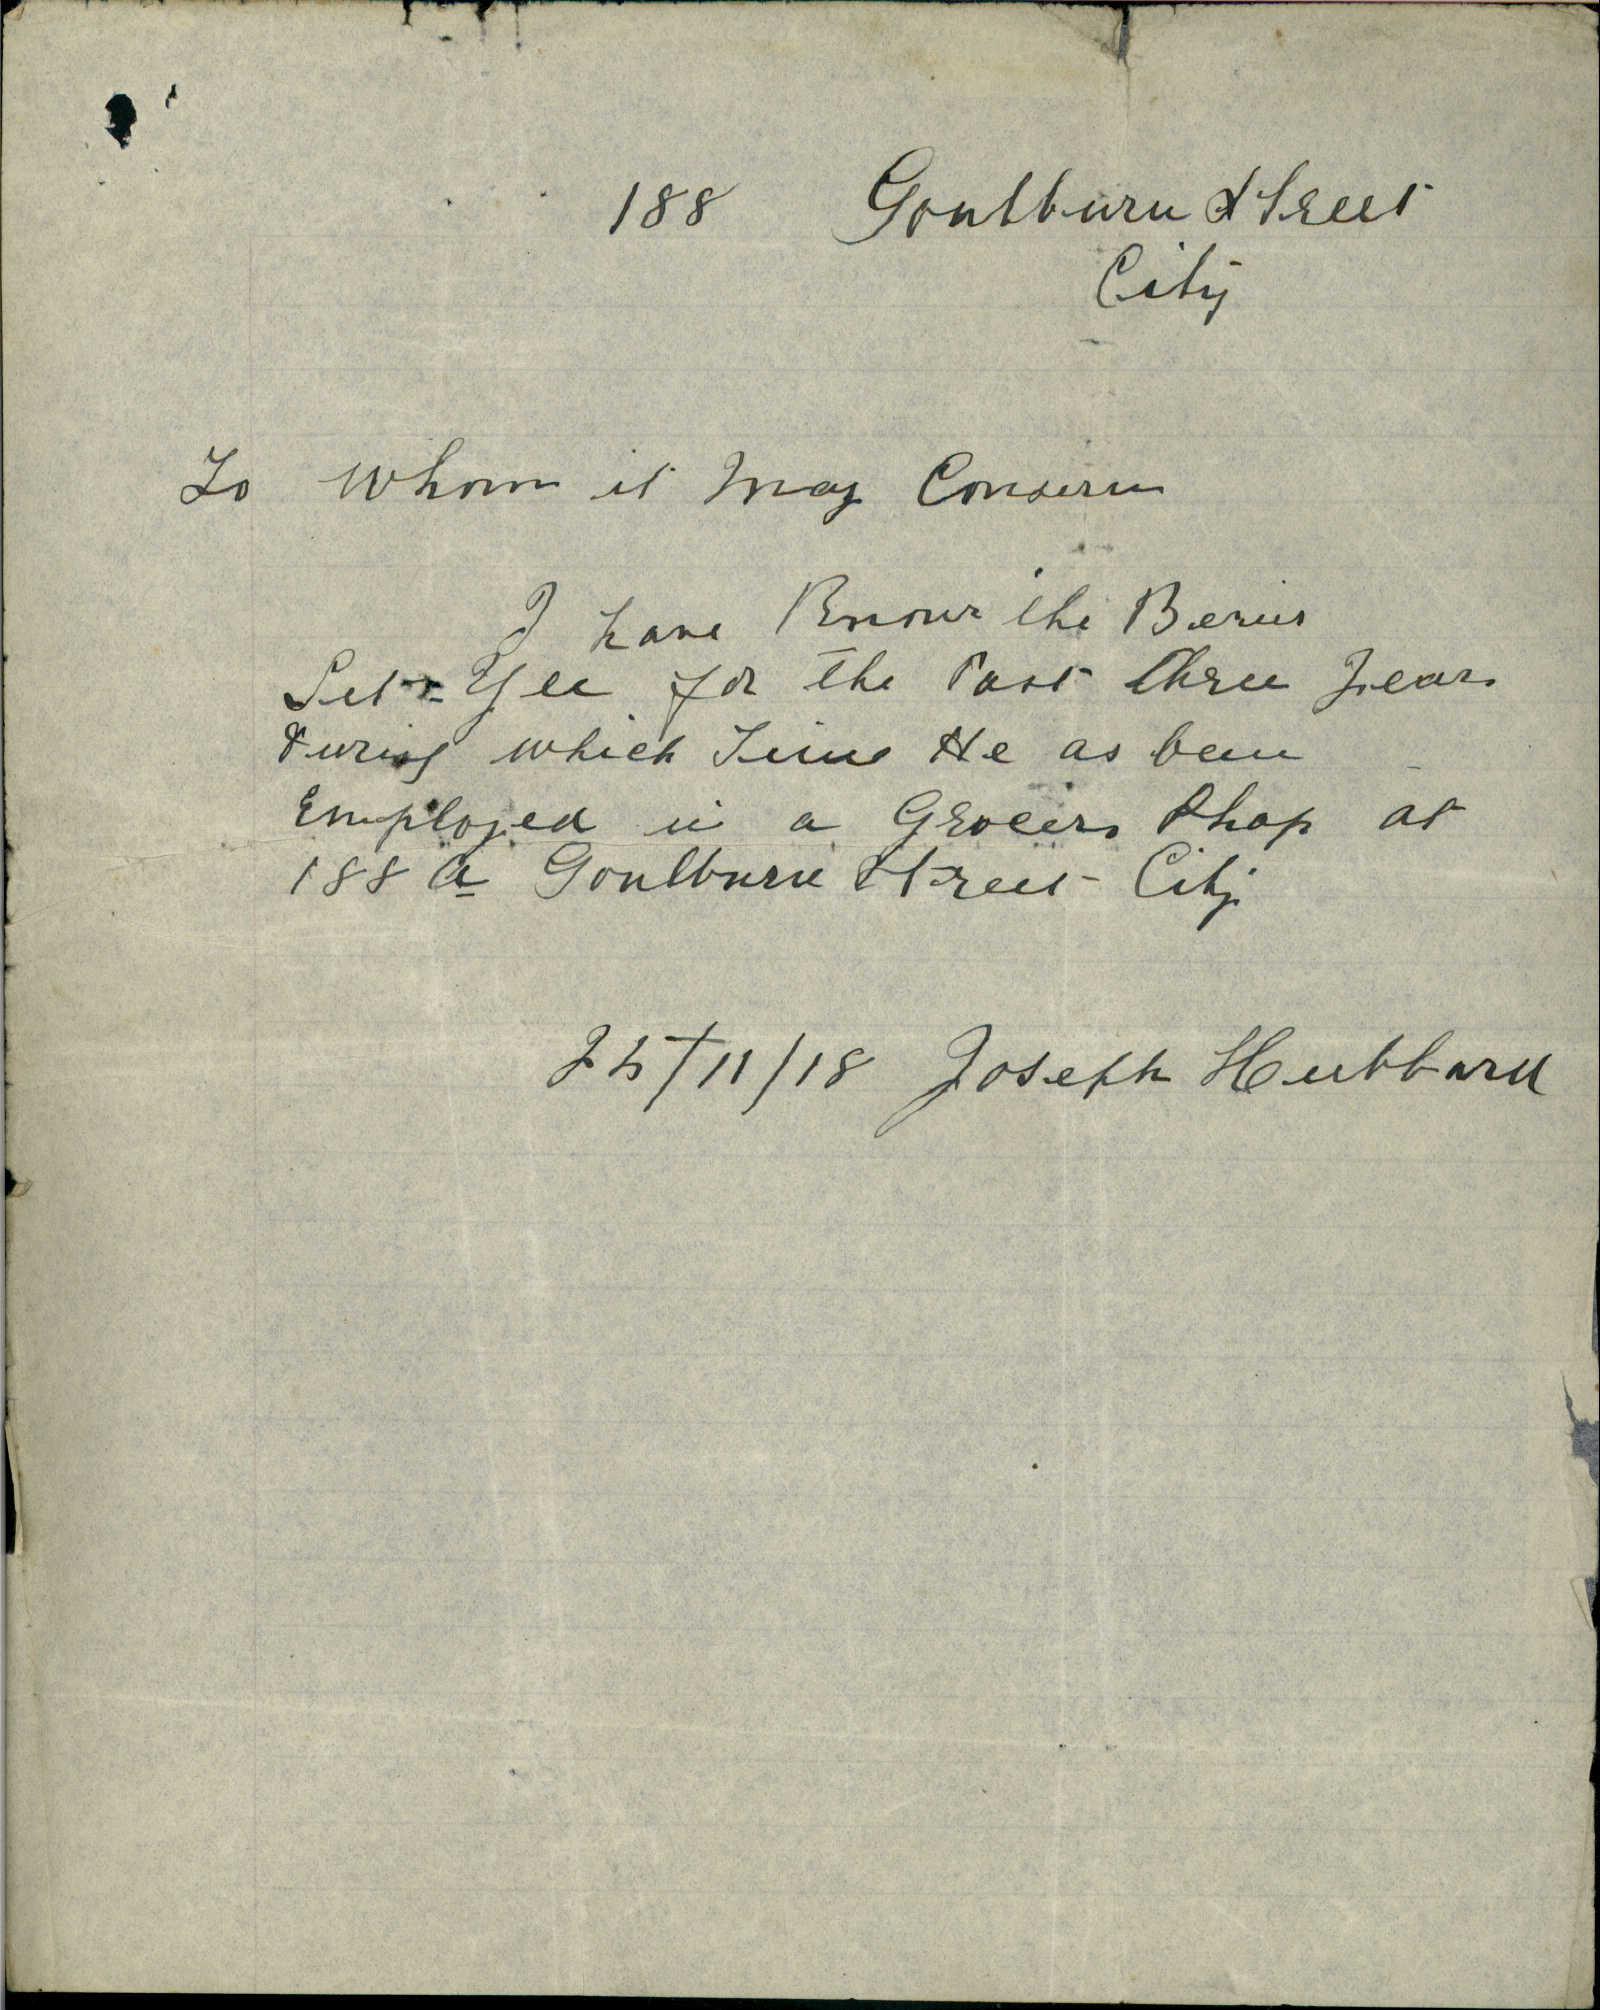 188 Goulburn Street
City
To Whom it May Consern
I have Know the Berier
Set Yee for the Past three Years
During which Time He as been
Employed in a Grocers Shop at
188 a Goulburn Street City
25/11/18 Joseph Hubbard